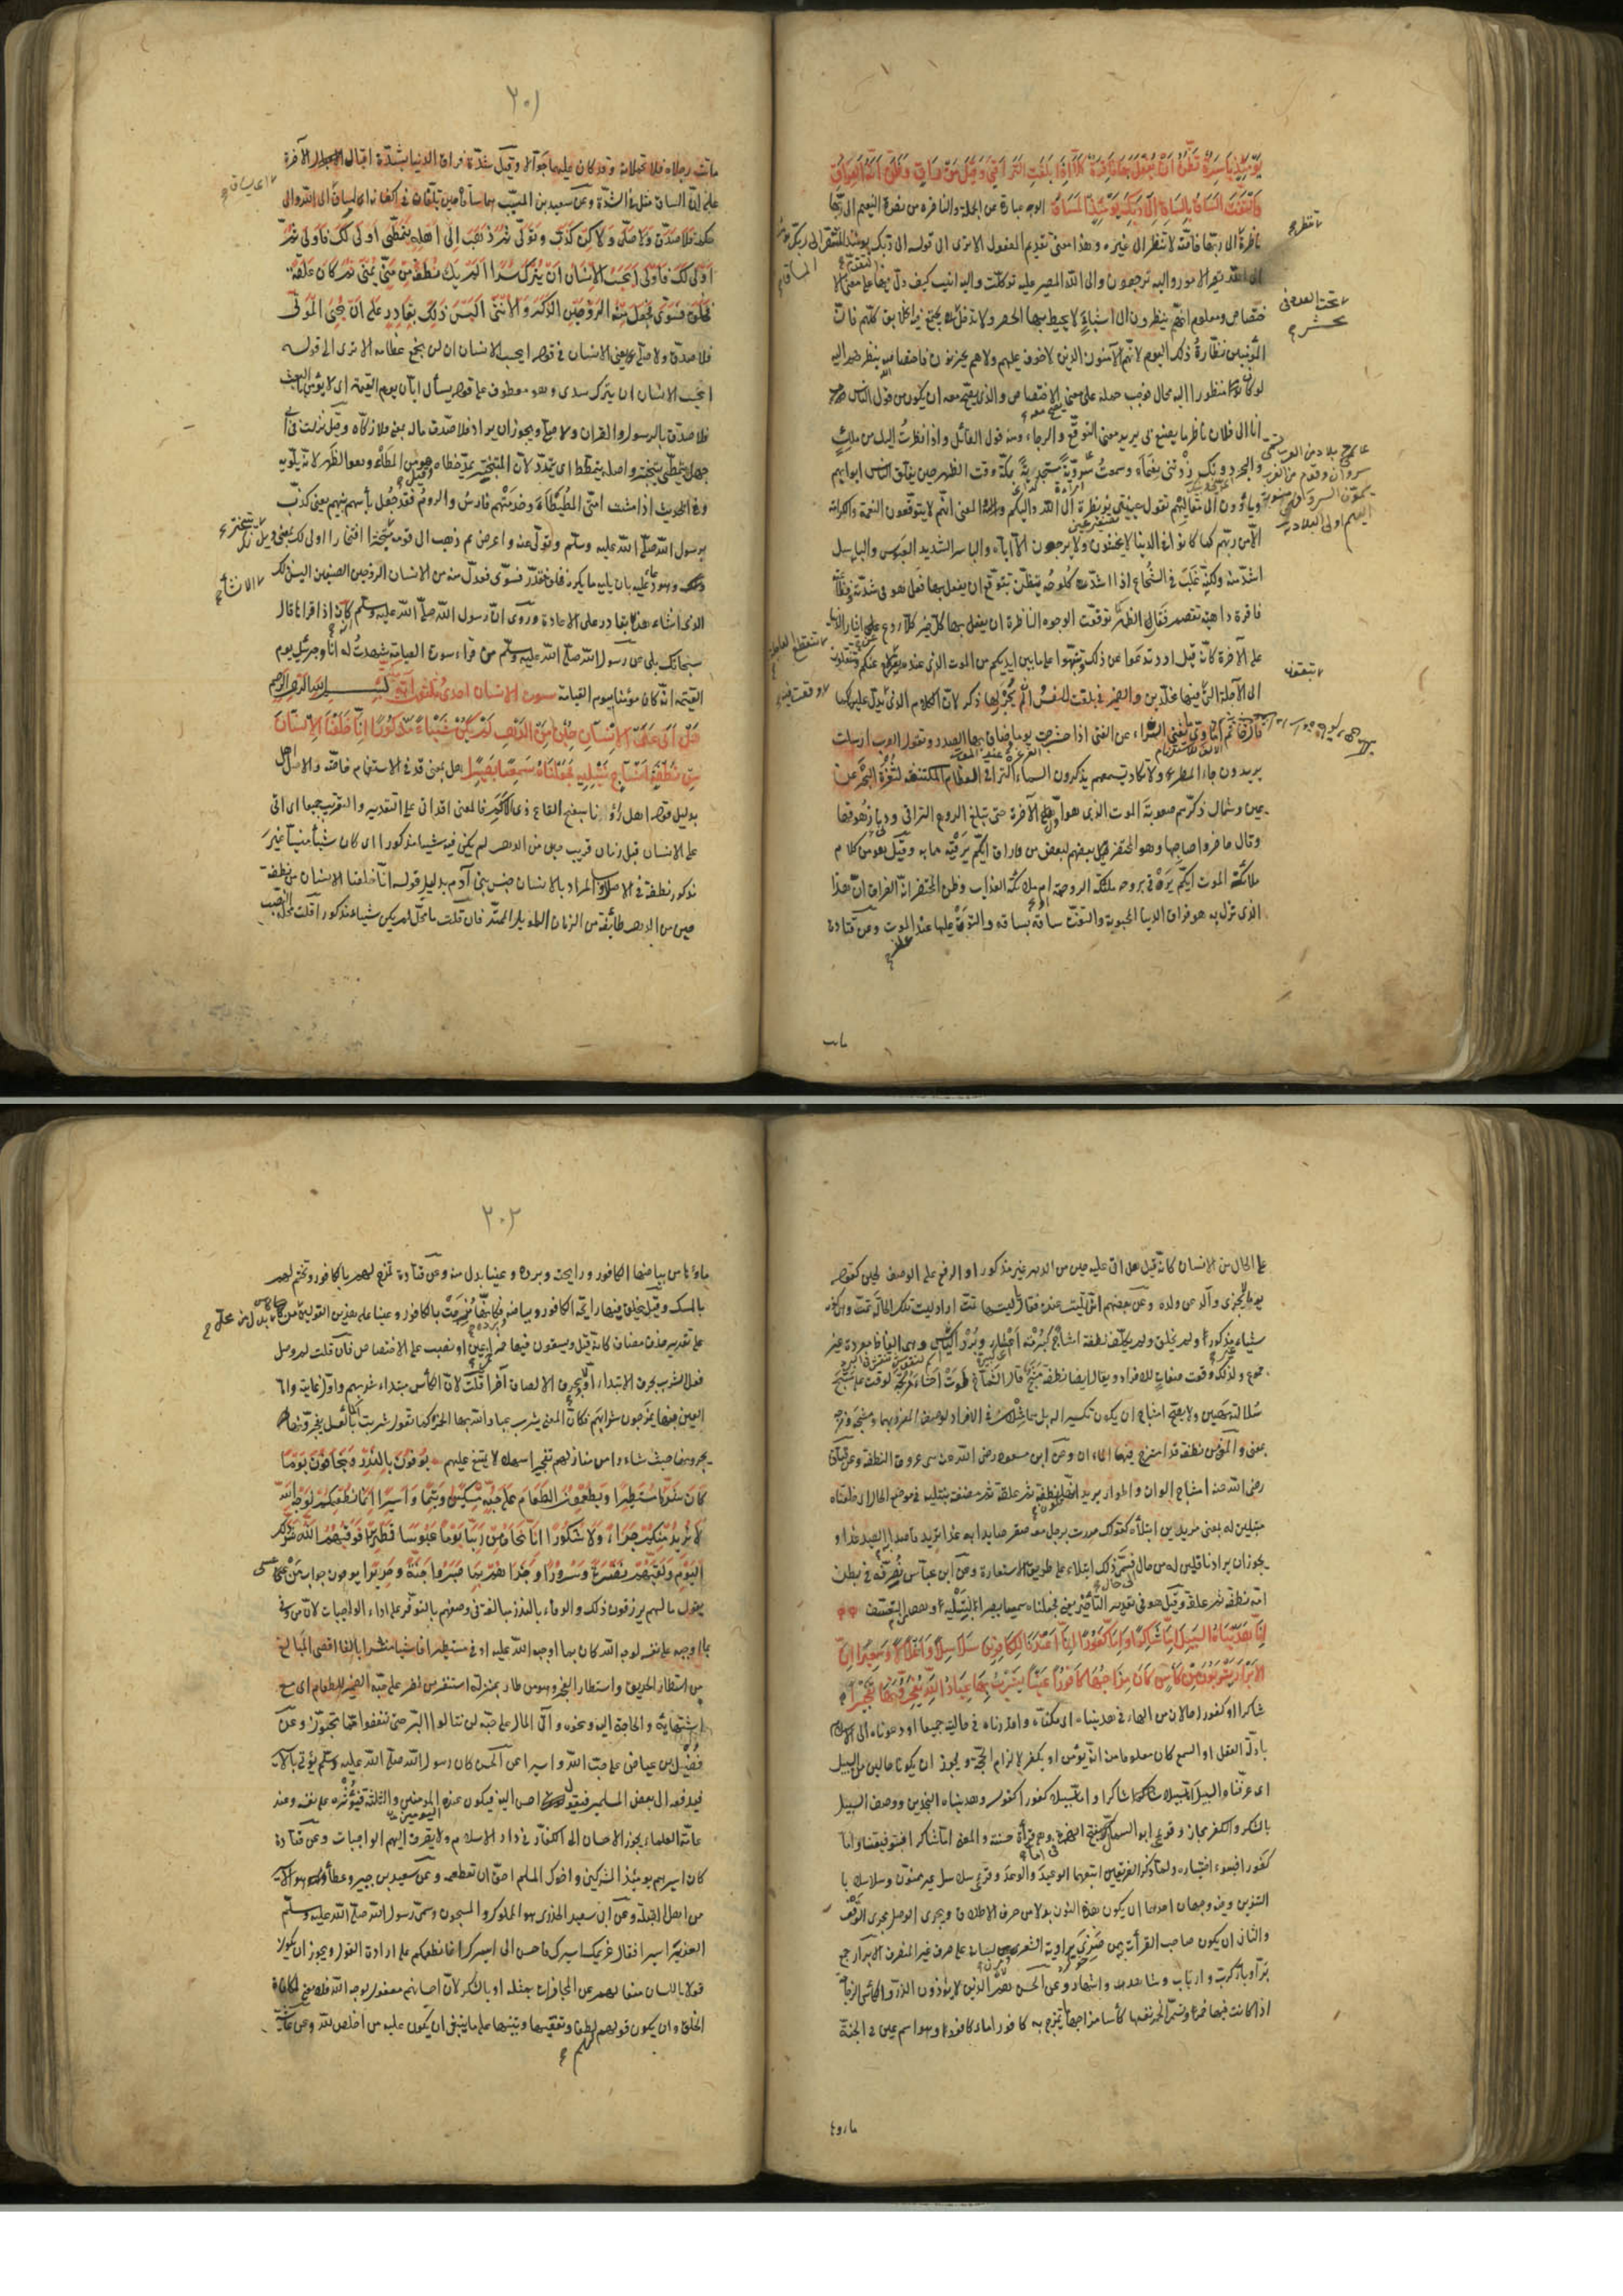 يَوْمَئِذٍ بَاسِرَةٌ تَظُنُّ أَنْ يُفْعَلَ بِهَا فَاقِرَةٌ كَلَّا إِذَا بَلَغَتِ التَّرَاقِيَ وَقِيلَ مَنْ رَاقٍ وَظَنَّ أَنَّهُ الْفِرَاقُ
وَالْتَفَّتِ السَّاقُ بِالسَّاقِ إِلَى رَبِّكَ يَوْمَئِذٍ الْمَسَاقُ الوجه عبارة عن الجملة والناضرة من نضرة النعيم الى ربها
ناظرة الى ربها خاصة لا تنظر الى غيره وهذا معنى تقديم المفعول الا ترى الى قوله الى ربك يومئذ المستقر الى ربك يومئذ
المساق
الى الله تصير الامور واليه ترجعون والى الله المصير عليه توكلت واليه انيب كيف دل فيها على معنى الا
ختصاص ومعلوم انهم ينظرون الى اشياء لا يحيط بها الحصر ولا تدخل تحت العدد في محشر يجتمع فيه الخلائق كلهم فان
المؤمنين نظارة ذلك اليوم لانهم الآمنون الذين لا خوف عليهم ولا هم يحزنون فاختصاصه بنظرهم اليه
لو كان منظورا اليه محال فوجب حمله على معنى يصح معه الاختصاص والذي يصح معه ان يكون من قول الناس
انا الى فلان ناظر ما يصنع بي يريد معنى التوقع والرجاء ومنه قول القائل واذا نظرت اليك من ملك
والبحر دونك زدتني نعماء وسمعت سروية مستجدية بمكة وقت الظهر حين يغلق الناس ابوابهم
ويأوون الى مقائلهم تقول عيينتي نويظرة الى الله واليكم والمعنى انهم لا يتوقعون النعمة والكرامة
الا من ربهم كما كانوا في الدنيا لا يخشون ولا يرجون الا اياه والباسر الشديد العبوس والباسل
اشد منه ولكنه غلب في الشجاع اذا اشتد كلوحه تظن تتوقع ان يفعل بها فعل هو في شدته وفظاعته
فاقرة داهية تقصم فقار الظهر توقعت الوجوه الناظرة ان يفعل بها كل خير كلا ردع على ايثار الدنيا
على الآخرة كانه قيل ارتدعوا عن ذلك وتنبهوا على ما بين ايديكم من الموت الذي عنده تنقطع العاجلة عنكم وتنتقلون
الى الآجلة التي تبقون فيها مخلدين والضمير في بلغت للنفس وان لم يجر لها ذكر لان الكلام الذي وقعت فيه يدل عليها كما
قال حاتم اماوي ما يغني الثراء عن الفتى اذا حشرجت يوما وضاق بها الصدر وتقول العرب ارسلت
يريدون جاء المطر ولا تكاد تسمعهم يذكرون السماء التراقي العظام المكتنفة لثغرة النحر عن
يمين وشمال ذكرهم صعوبة الموت الذي هو اول مراحل الآخرة حتى تبلغ الروح التراقي ودنا زهوقها
وقال حاضرو صاحبها وهو المحتضر بعضهم لبعض من راق ايكم يرقيه مما به وقيل هو من كلام
ملائكة الموت ايكم يرقى بروحه ملائكة الرحمة ام ملائكة العذاب وظن المحتضر انه الفراق ان هذا
الذي نزل به هو فراق الدنيا المحبوبة والتفت ساقه بساقه والتوت عليها عند علز الموت وعن قتادة
ماتت
٢٠١
ماتت رجلاه فلا تحملانه وقد كان عليهما جوالا وقيل شدة فراق الدنيا بشدة اقبال الآخرة
على ان الساق مثل في الشدة وعن سعيد بن المسيب هما ساقاه حين تلفان في اكفانه اي يساق الى الله والى
حكمه فَلَا صَدَّقَ وَلَا صَلَّى وَلَكِنْ كَذَّبَ وَتَوَلَّى ثُمَّ ذَهَبَ إِلَى أَهْلِهِ يَتَمَطَّى أَوْلَى لَكَ فَأَوْلَى ثُمَّ
أَوْلَى لَكَ فَأَوْلَى أَيَحْسَبُ الْإِنْسَانُ أَنْ يُتْرَكَ سُدًى أَلَمْ يَكُ نُطْفَةً مِنْ مَنِيٍّ يُمْنَى ثُمَّ كَانَ عَلَقَةً
فَخَلَقَ فَسَوَّى فَجَعَلَ مِنْهُ الزَّوْجَيْنِ الذَّكَرَ وَالْأُنْثَى أَلَيْسَ ذَلِكَ بِقَادِرٍ عَلَى أَنْ يُحْيِيَ الْمَوْتَى
فلا صدق ولا صلى يعني الانسان في قوله ايحسب الانسان ان لن نجمع عظامه الا ترى الى قوله
ايحسب الانسان ان يترك سدى وهو معطوف على قوله يسأل ايان يوم القيمة اي لا يؤمن بالبعث
فلا صدق بالرسول والقران ولا صلى ويجوز ان يراد فلا صدق ماله بمعنى فلا زكاه وقيل نزلت في ابي
جهل يتمطى يتبختر واصله يتمطط اي يتمدد لان المتبختر يمد خطاه وقيل هو من المطا وهو الظهر لانه يلويه
وفي الحديث اذا مشت امتي المطيطاء وخدمتهم فارس والروم فقد جعل بأسهم بينهم يعني كذب
برسول الله صلى الله عليه وسلم وتولى عنه واعرض ثم ذهب الى قومه يتبختر افتخارا اولى لك بمعنى ويل لك
وهو دعاء عليه بان يليه ما يكره فخلق فقدر فسوى فعدل منه من الانسان الزوجين الصنفين اليس ذلك
الذي انشأ هذا الانشاء بقادر على الاعادة وروي ان رسول الله صلى الله عليه وسلم كان اذا قرأها قال
سبحانك بلى عن رسول الله صلى الله عليه وسلم من قرأ سورة القيامة شهدت له انا وجبرئيل يوم
القيمة انه كان مؤمنا بيوم القيامة سورة الانسان احدى وثلثون آية بسم الله الرحمن الرحيم
هَلْ أَتَى عَلَى الْإِنْسَانِ حِينٌ مِنَ الدَّهْرِ لَمْ يَكُنْ شَيْئًا مَذْكُورًا إِنَّا خَلَقْنَا الْإِنْسَانَ
مِنْ نُطْفَةٍ أَمْشَاجٍ نَبْتَلِيهِ فَجَعَلْنَاهُ سَمِيعًا بَصِيرًا هل بمعنى قد في الاستفهام خاصة والاصل اهل
بدليل قوله اهل رأونا بسفح القاع ذي الاكم فالمعنى اقد اتى على التقدير والتقريب جميعا اي اتى
على الانسان قبل زمان قريب حين من الدهر لم يكن فيه شيئا مذكورا اي كان شيأ منسيا غير
مذكور نطفة في الاصلاب والمراد بالانسان جنس بني آدم بدليل قوله انا خلقنا الانسان من نطفة
حين من الدهر طائفة من الزمان الطويل الممتد فان قلت ما محل لم يكن شيئا مذكورا قلت محله النصب
على الحال من الانسان كانه قيل هل اتى عليه حين من الدهر غير مذكور او الرفع على الوصف لحين كقوله
يوما لا يجزي والد عن ولده وعن بعضهم انها تليت عنده فقال ليتها تمت اراد ليت تلك الحالة تمت
شيئا مذكورا ولم يخلق ولم يكلف نطفة امشاج كبرمة اعشار وبرد اكياش وهي الفاظ مفردة غير
جموع ولذلك وقعت صفات للافراد ويقال ايضا نطفة مشج قال الشماخ طوت احشاء مرتجة لوقت على مشج
سلالته مهين ولا يصح امشاج ان يكون تكسيرا له بل هما مثلان في الافراد لوصف المفرد بهما ومشجه ومزجه
بمعنى والمعنى من نطفة قد امتزج فيها الماءان وعن ابن مسعود رضي الله عنه هي عروق النطفة وعن قتادة
امشاج الوان واطوار يريد انها تكون نطفة ثم علقة ثم مضغة نبتليه في موضع الحال اي خلقناه
مبتلين له بمعنى مريدين ابتلاءه كقولك مررت برجل معه صقر صايدا به غدا تريد قاصدا به الصيد غدا و
يجوز ان يراد ناقلين له من حال الى حال فسمي ذلك ابتلاء على طريق الاستعارة وعن ابن عباس نصرفه في بطن
امه نطفة ثم علقة وقيل هو في تقدير التأخير يعني فجعلناه سميعا بصيرا لنبتليه وهو من التعسف
إِنَّا هَدَيْنَاهُ السَّبِيلَ إِمَّا شَاكِرًا وَإِمَّا كَفُورًا إِنَّا أَعْتَدْنَا لِلْكَافِرِينَ سَلَاسِلَ وَأَغْلَالًا وَسَعِيرًا إِنَّ
الْأَبْرَارَ يَشْرَبُونَ مِنْ كَأْسٍ كَانَ مِزَاجُهَا كَافُورًا عَيْنًا يَشْرَبُ بِهَا عِبَادُ اللَّهِ يُفَجِّرُونَهَا تَفْجِيرًا
شاكرا او كفورا حالان من الهاء في هديناه اي مكناه واقدرناه في حالتيه جميعا او دعوناه الى الاسلام
بادلة العقل او السمع كان معلوما منه انه يؤمن او يكفر لالزام الحجة ويجوز ان يكونا حالين من السبيل
اي عرفناه السبيل اما سبيلا شاكرا واما سبيلا كفورا كقوله وهديناه النجدين ووصف السبيل
بالشكر والكفر مجاز وقرئ ابو السمال بفتح الهمزة في اما وهي قرأة حسنة والمعنى اما شاكرا فبتوفيقنا واما
كفورا فبسوء اختياره ولما ذكر الفريقين اتبعهما الوعيد والوعد وقرئ سلاسل غير منون وسلاسلا با
التنوين وفيه وجهان احدهما ان يكون هذه النون بدلا من حرف الاطلاق ويجري الوصل مجرى الوقف
والثاني ان يكون صاحب القرأة ممن ضري برواية الشعر ومرن لسانه على صرف غير المنصرف الابرار جمع
بر او بار كرب وارباب وشاهد واشهاد وعن الحسن هم الذين لا يؤذون الذر والكأس الزجاجة
اذا كانت فيها خمر وتسمى الخمر نفسها كأسا مزاجها ما تمزج به كافورا ماء كافور وهو اسم عين في الجنة
ماؤها
٢٠٢
ماؤها من بياضها الكافور ورايحته وبرده وعينا بدل منه وعن قتادة تمزج لهم بالكافور وتختم لهم
بالمسك وقيل تخلق فيها رائحة الكافور وبياضه وبرده فكانها مزجت بالكافور وعينا على هذين القولين بدل من محل من كأس
على تقدير حذف مضاف كانه قيل ويسقون فيها خمرا خمر عين او نصب على الاختصاص فان قلت لم وصل
فعل الشرب بحرف الابتداء اولا وبحرف الالصاق آخرا قلت لان الكأس مبتداء شربهم واول غايته واما
العين فبها يمزجون شرابهم فكان المعنى يشرب عباد الله بها الخمر كما تقول شربت الماء بالعسل يفجرونها
يجرونها حيث شاءوا من منازلهم تفجيرا سهلا لا يمتنع عليهم يُوفُونَ بِالنَّذْرِ وَيَخَافُونَ يَوْمًا
كَانَ شَرُّهُ مُسْتَطِيرًا وَيُطْعِمُونَ الطَّعَامَ عَلَى حُبِّهِ مِسْكِينًا وَيَتِيمًا وَأَسِيرًا إِنَّمَا نُطْعِمُكُمْ لِوَجْهِ اللَّهِ
لَا نُرِيدُ مِنْكُمْ جَزَاءً وَلَا شُكُورًا إِنَّا نَخَافُ مِنْ رَبِّنَا يَوْمًا عَبُوسًا قَمْطَرِيرًا فَوَقَاهُمُ اللَّهُ شَرَّ ذَلِكَ
الْيَوْمِ وَلَقَّاهُمْ نَضْرَةً وَسُرُورًا وَجَزَاهُمْ بِمَا صَبَرُوا جَنَّةً وَحَرِيرًا يوفون جواب من عسى
يقول ما لهم يرزقون ذلك والوفاء بالنذر مبالغة في وصفهم بالتوفر على اداء الواجبات لان من وفى
بما اوجبه على نفسه لوجه الله كان بما اوجبه الله عليه اوفى مستطيرا فاشيا منتشرا بالغا اقصى المبالغ
من استطار الحريق واستطار الفجر وهو من طار بمنزلة استنفر من نفر على حبه الضمير للطعام اي مع
اشتهائه والحاجة اليه ونحوه وآتى المال على حبه لن تنالوا البر حتى تنفقوا مما تحبون وعن
فضيل بن عياض على حب الله واسيرا عن الحسن كان رسول الله صلى الله عليه وسلم يؤتى بالاسير
فيدفعه الى بعض المسلمين فيقول احسن اليه فيكون عنده اليومين والثلثة فيؤثره على نفسه وعند
عامة العلماء يجوز الاحسان الى الكفار في دار الاسلام ولا يصرف اليهم الواجبات وعن قتادة
كان اسيرهم يومئذ المشركين واخوك المسلم احق ان تطعمه وعن سعيد بن جبير وعطاء هو الاسير
من اهل القبلة وعن ابي سعيد الخدري هو المملوك والمسجون وسمى رسول الله صلى الله عليه وسلم
الغريم اسيرا فقال غريمك اسيرك فاحسن الى اسيرك انما نطعمكم على ارادة القول ويجوز ان يكون
قولا باللسان منعا لهم عن المجازاة بمثله او بالشكر لان احسانهم مفعول لوجه الله فلا معنى لمكافاة
الخلق وان يكون قولهم لهم لطفا وتفقيها وتنبيها على ما ينبغي ان يكون عليه من اخلص لله وعن عائشة